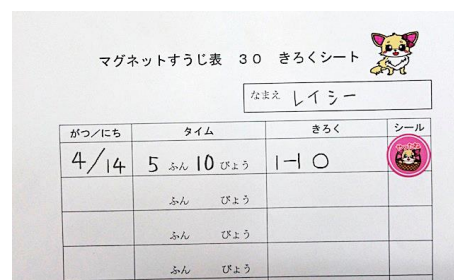 マグネットすうじ表 30 きろくシート
なまえ レイシー
がつ/にち タイム きろく シール
4/14 5 ふん 10 びょう 1-10
ふん びょう
ふん びょう
ふん びょう